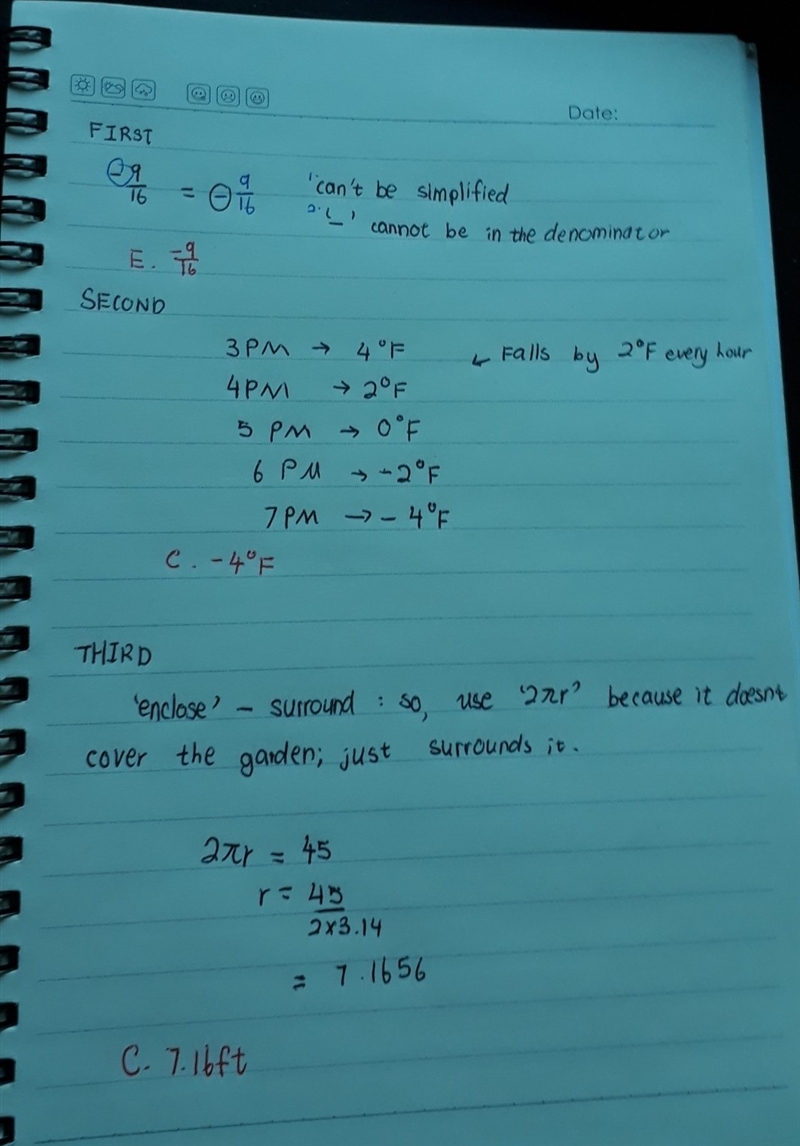 Date:
FIRST
-9/16 = - 9/16 1. can't be simplified
2. '-' cannot be in the denominator
E. -9/16
SECOND
3 PM → 4°F ↙ Falls by 2°F every hour
4 PM → 2°F
5 PM → 0°F
6 PM → -2°F
7 PM → - 4°F
C. -4°F
THIRD
'enclose' - surround : so, use '2πr' because it doesnt
cover the garden; just surrounds it.
2πr = 45
r = 45/2x3.14
= 7.1656
C. 7.16ft